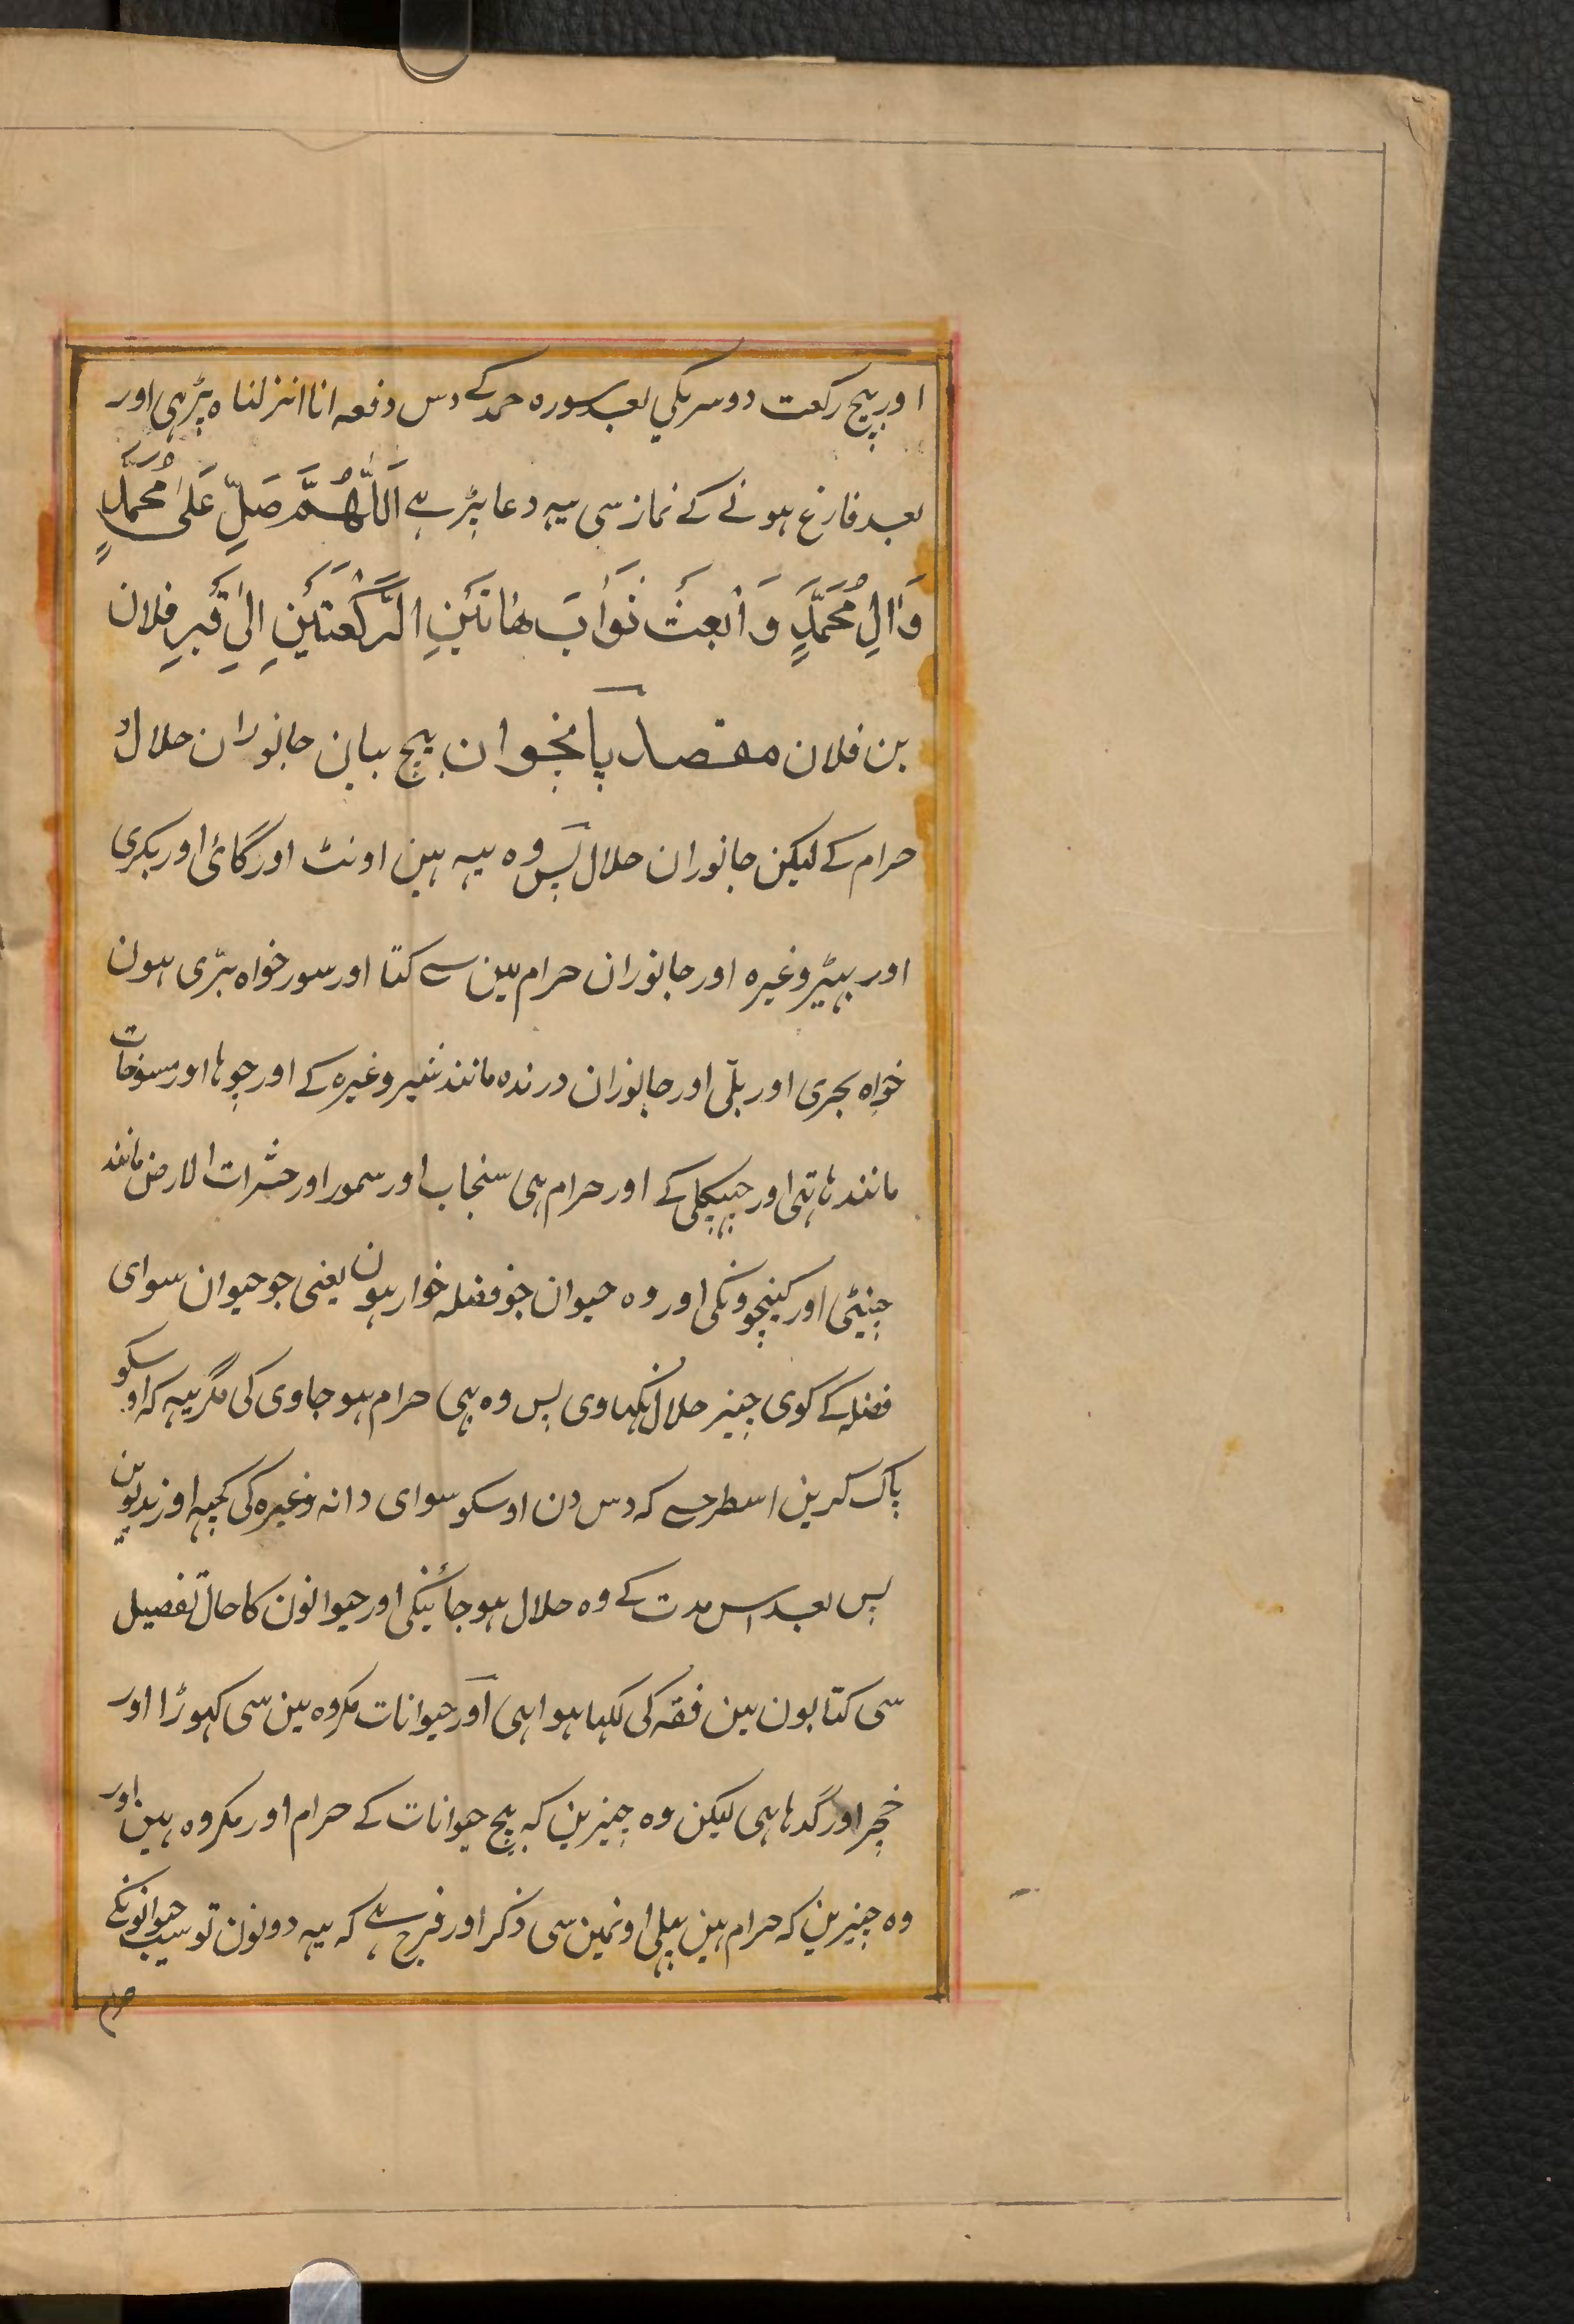 اور بیچ رکعت دوسریکی بعد سورہ حمد کے دس دفعہ انا انزلناہ پڑہی اور
بعد فارغ ہونے کے نماز سی یہہ دعا پڑہے اَللّٰهُمَّ صَلِّ عَلٰی مُحَمَّدٍ
وَاٰلِ مُحَمَّدٍ وَ اَبْعَثْ ثَوَابَ هَاتَیْنِ الرَّکْعَتَیْنِ اِلٰی قَبْرِ فلان
بن فلان مقصد پانچوان بیچ بیان جانوران حلال و
حرام کے لیکن جانوران حلال پس وہ یہہ ہین اونٹ اور گائی اور بکری
اور بہیڑ وغیرہ اور جانوران حرام مین سے کتا اور سور خواہ بڑی ہون
خواہ بحری اور بلّی اور جانوران درندہ مانند شیر وغیرہ کے اور چوہا اور مسوخات
مانند ہاتہی اور چہپکلی کے اور حرام ہی سنجاب اور سمور اور حشرات الارض مانند
چینٹی اور کینچوونکی اور وہ حیوان جو فضلہ خوار ہون یعنی جو حیوان سوای
فضلہ کے کوی چیز حلال نکہاوی پس وہ بہی حرام ہو جاوی کی مگر یہہ کہ اوسکو
پاک کرین اسطرحسے کہ دس دن اوسکو سوای دانہ وغیرہ کی کچہہ اور ندیوین
پس بعد اس مدت کے وہ حلال ہو جائینگی اور حیوانون کا حال تفصیل
سی کتابون مین فقہ کی لکہا ہوا ہی اور حیوانات مکروہ مین سی کہوڑا اور
خچر اور گدہا ہی لیکن وہ چیزین کہ بیچ حیوانات کے حرام اور مکروہ ہین اور
وہ چیزین کہ حرام ہین پہلی اونمین سی ذکر اور فرج ہے کہ یہہ دونون تو سب حیوانونکے
حرام